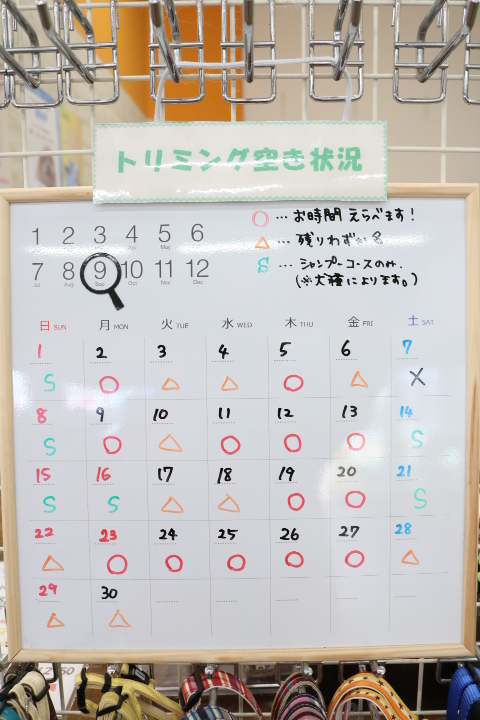 トリミング空き状況
○ … お時間 えらべます!
△ … 残りわずか
S … シャンプーコースのみ.
(※犬種によります。)
1 2 3 4 5 6
Mar Apr May Jun
7 8 9 10 11 12
Jul Aug Sep Oct Nov Dec
日 SUN 月 MON 火 TUE 水 WED 木 THU 金 FRI 土 SAT
1 2 3 4 5 6 7
S ○ △ △ ○ △ X
8 9 10 11 12 13 14
S ○ △ ○ ○ ○ S
15 16 17 18 19 20 21
S S △ △ ○ ○ S
22 23 24 25 26 27 28
△ ○ ○ ○ ○ ○ △
29 30
△ △